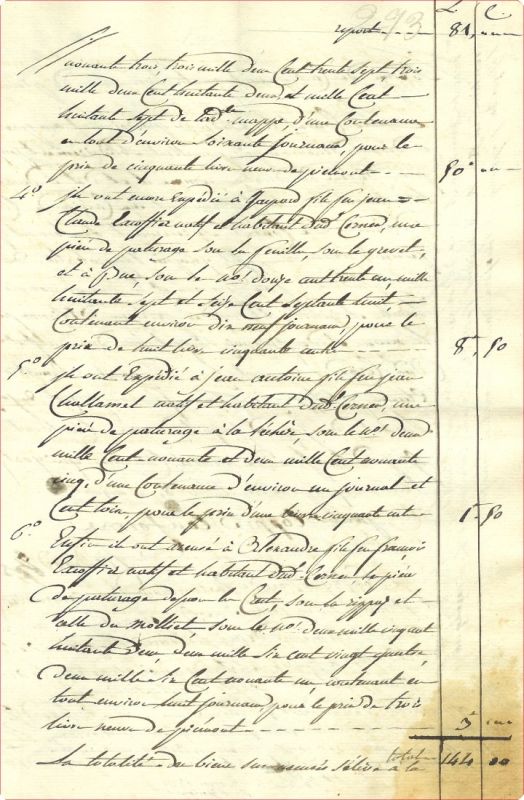 293
L. C.
report - - - 81, ——
nonante trois, trois mille deux Cent trente sept trois
mille deux Cent huitante deux, et mille Cent
huitante sept de lad.te mappe d'une Contenance
en tout d'environ soixante journaux, pour le
prix de cinquante livres neuves de piemont - - - 50 ——
4.o ils ont encore Expédié à Gaspard fils feu jean =
Claude Excoffier natif et habitant dud. Cernex, une
pièce de patturage sous
et à sous le no. douze cent trente un mille
huitante sept et seize Cent septante huit, -
Contenant environ dix neuf journaux, pour le
prix de huit livres cinquante cents - - - 8, 50
5.o ils ont Expédié à jean antoine fils feu jean
Chullamel natif et habitant dud. Cernex, une
pièce de patturage à la sous le no. deux
mille Cent nonante et deux mille Cent nonante
cinq, d'une Contenance d'environ un journal et
Cent toises pour le prix d'une livre cinquante cents - 1. 50
6.o Enfin ils ont à Alexandre fils feu françois
Excoffier natif et habitant dud. Cernex, la pièce
de patturage sous la et
celle du Molliet sous le no. deux mille cinq cent
huitante deux mille six cent vingt quatre
deux mille six Cent nonante un contenant en
tout environ huit journaux pour le prix de trois
livres neuves de piémont - - - 3 ——
total 144 00
La totalité des biens sus s'élève à la